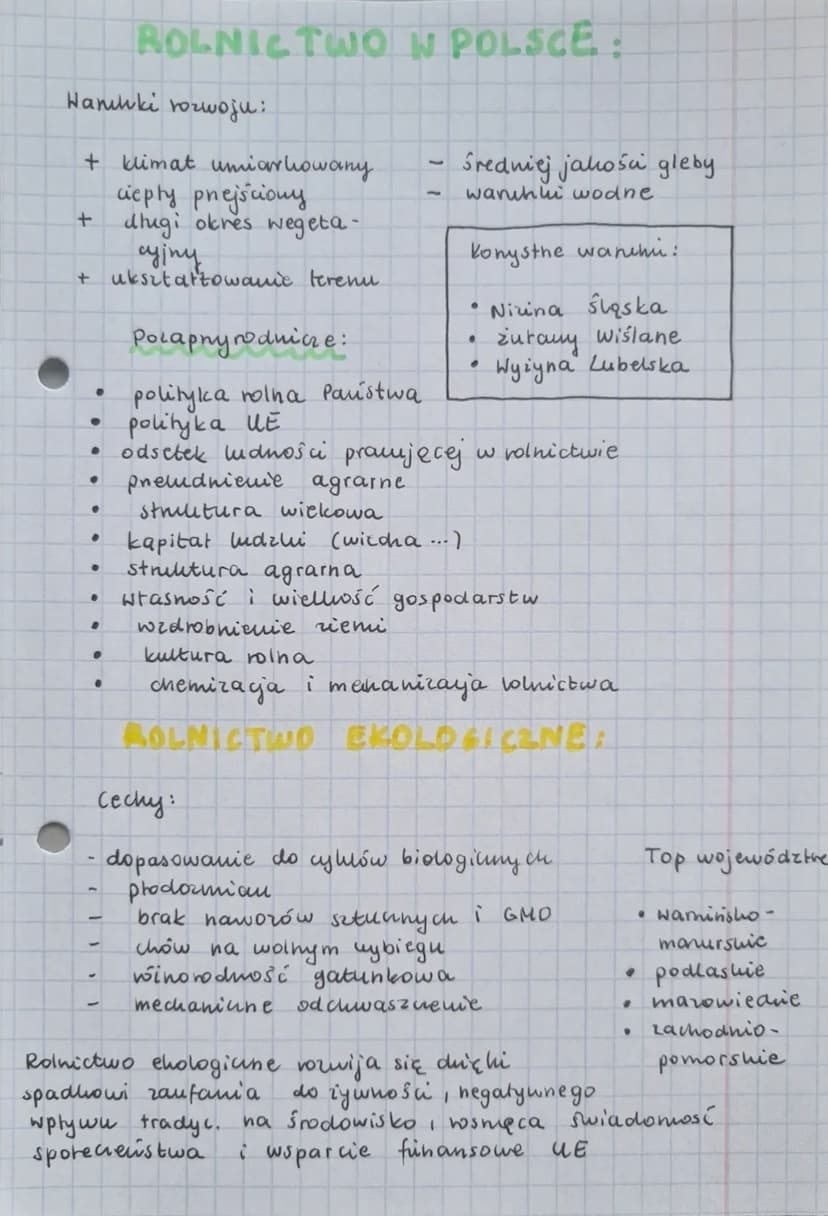 ROLNICTWO W POLSCE:
Warunki rozwoju:
+ klimat umiarkowany
ciepły przejściowy
+ długi okres wegeta-
cyjny
+ ukształtowanie terenu
- średniej jakości gleby
- warunki wodne
Korzystne warunki:
• Nizina Śląska
• żuławy wiślane
• Wyżyna Lubelska
Pozaprzyrodnicze:
• polityka rolna Państwa
• polityka UE
• odsetek ludności pracującej w rolnictwie
• przeludnienie agrarne
• struktura wiekowa
• kapitał ludzki (wiedza ...)
• struktura agrarna
• własność i wielkość gospodarstw
• rozdrobnienie ziemi
• kultura rolna
• chemizacja i mechanizacja rolnictwa
ROLNICTWO EKOLOGICZNE:
Cechy:
- dopasowanie do cyklów biologicznych
- płodozmian
- brak nawozów sztucznych i GMO
- chów na wolnym wybiegu
- różnorodność gatunkowa
- mechaniczne odchwaszczenie
Top województwa
• warmińsko-
mazurskie
• podlaskie
• mazowieckie
• zachodnio-
pomorskie
Rolnictwo ekologiczne rozwija się dzięki
spadkowi zaufania do żywności, negatywnego
wpływu tradyc. na środowisko, rosnąca świadomość
społeczeństwa i wsparcie finansowe UE